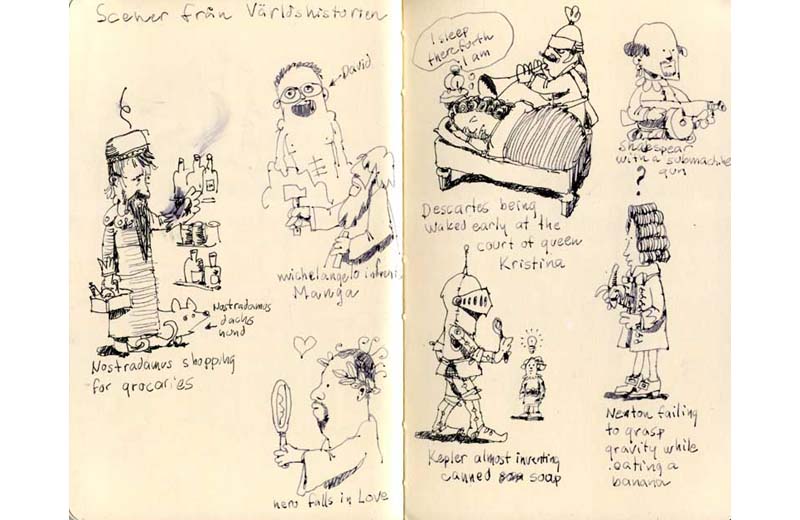 Scener från Världshistorien
David
Nostradamus
dachs
hund
Nostradamus shopping
for grocaries
michelangelo
Manga
nero falls in Love
I sleep
thereforth
I am
Descartes being
waked early at the
court of queen
Kristina
shakespear
with a submachine
gun
?
Kepler almost inventing
canned soap
Newton failing
to grasp
gravity while
eating a
banana